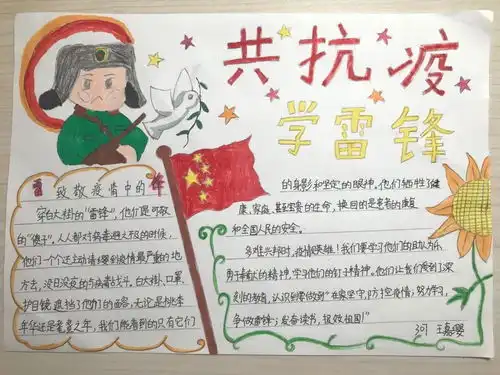 共抗疫
学雷锋
致敬疫情中的"雷锋"
穿白大褂的"雷锋",他们是可敬
的"傻子"。人人都对病毒避之不及的时候,
他们一个个还主动请缨到疫情最严重的地
方去,没日没夜的与病毒战斗,白大褂、口罩、
护目镜,遮挡了他们的面容,无论是桃李
年华还是耄耋之年,我们能看到的只有它们
的身影和坚定的眼神。他们牺牲了健
康、家庭,甚至宝贵的生命,换回的是患者的康复
和全国人民的安全。
多难兴邦时,疫情现英雄!我们要学习他们的团队为乐,
勇于奉献的精神,学习他们的钉子精神。他们让我们受到了深
刻的教育,认识到要做到"在家坚守,防控疫情;努力学习,
争做雷锋;发奋读书,报效祖国"
王嘉璎